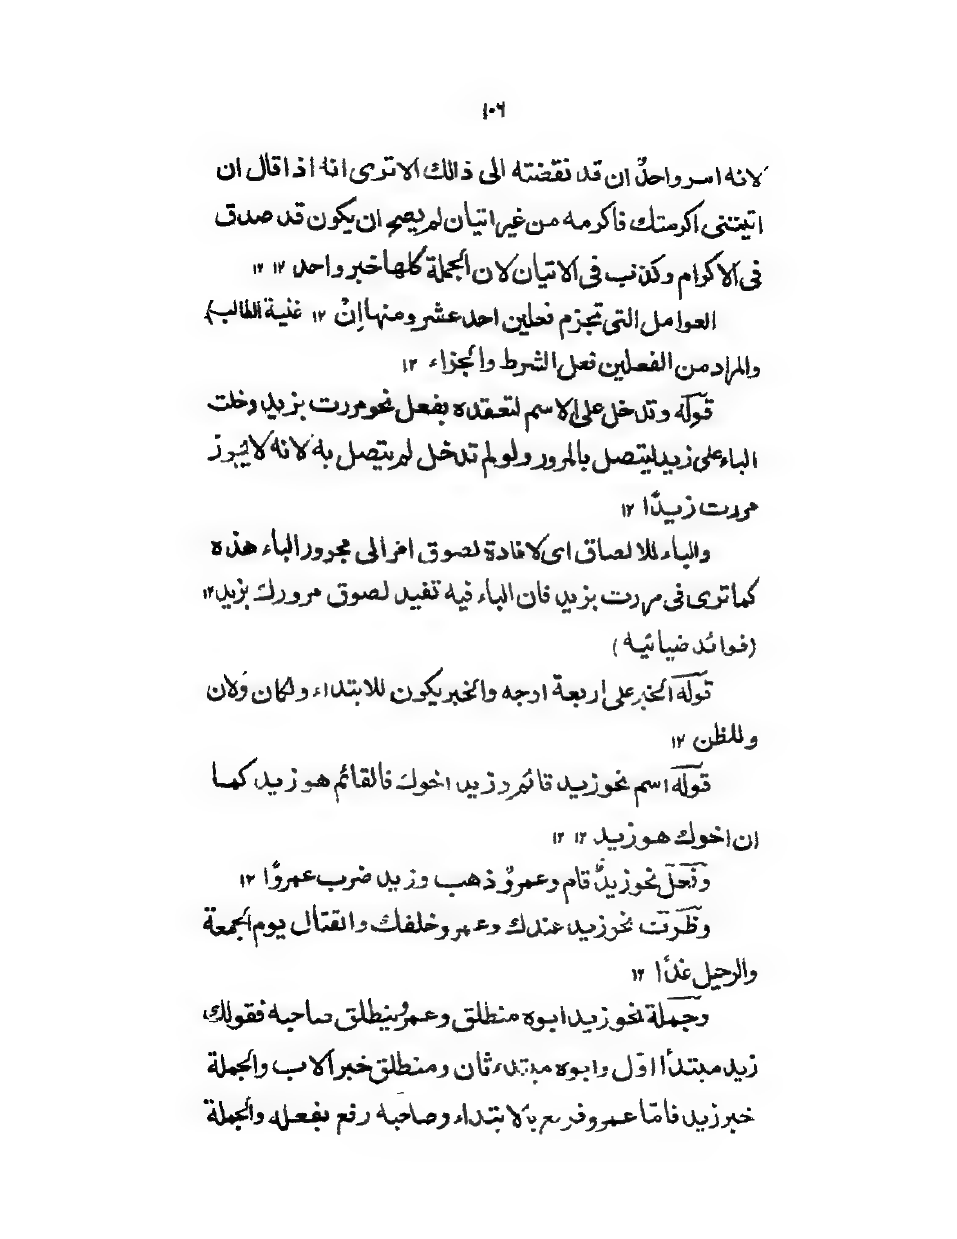 ١٠٦
لانه اسر واحدٌ ان قد نقضته الى ذالك الا ترى انه اذا قال ان
اتيتنى اكرمتك فاكرمه من غير اتيان لم يصح ان يكون قد صدق
فى الاكرام وكذب فى الاتيان لان الجملة كلها خبر واحد ١٢ ١٢
العوامل التى تجزم فعلين احد عشر ومنها إنْ ١٢ غنية الطالب)
والمراد من الفعلين فعل الشرط والجزاء ١٢
قوله وتدخل على الاسم لتعقده بفعل نحو مررت بزيد دخلت
الباء على زيد ليتصل بالمرور ولو لم تدخل لم يتصل به لانه لا يجوز
مررت زيدًا ١٢
والباء للالصاق اى لافادة لصوق امر الى مجرور الباء هذه
كما ترى فى مررت بزيد فان الباء فيه تفيد لصوق مرورك بزيد ١٢
(فوائد ضيائيه)
قوله الخبر على اربعة اوجه والخبر يكون للابتداء ولكان ولان
وللظن ١٢
قوله اسم نحو زيد قائم و زيد اخوك فالقائم هو زيد كما
ان اخوك هو زيد ١٢ ١٢
وفعل نحو زيدٌ قام وعمروٌ ذهب وزيد ضرب عمروًا ١٢
وظرت نحو زيد عندك وعمرو خلفك والقتال يوم الجمعة
والرحيل غدًا ١٢
وجملة نحو زيد ابوه منطلق وعمرو ينطلق صاحبه فقولك
زيد مبتدأ اوّل وابوه مبتدء ثان ومنطلق خبر الاب والجملة
خبر زيد فامّا عمرو فرفع بالابتداء وصاحبه رفع بفعله والجملة